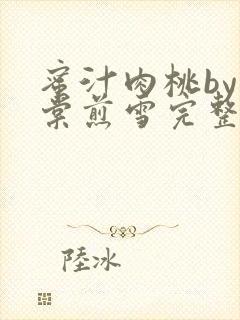 蜜汁肉桃by
棠煎雪完整
陸冰